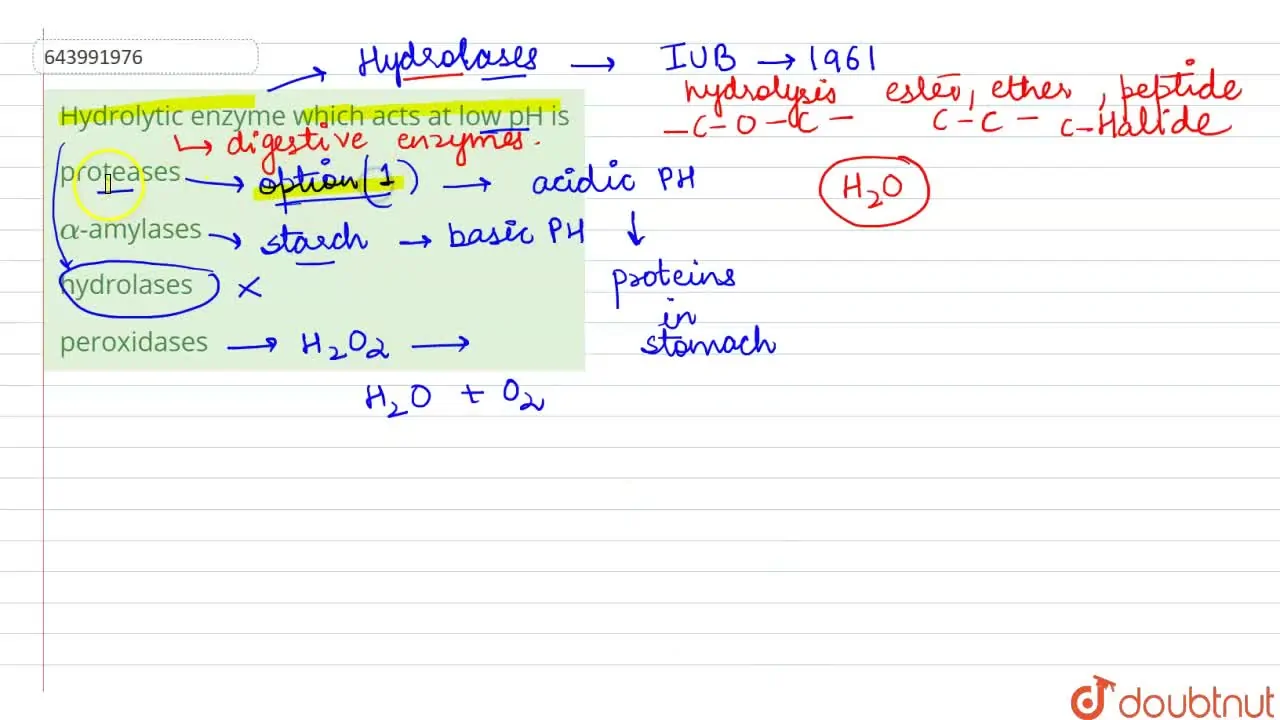 643991976
Hydrolases → IUB → 1961
hydrolysis ester, ether, peptide
-C-O-C- C-C- C-Halide
Hydrolytic enzyme which acts at low pH is
↳ digestive enzymes.
proteases → option (1) → acidic PH
1
H2O
α-amylases → starch → basic PH
hydrolases ×
proteins
in
stomach
peroxidases → H2O2 →
H2O + O2
doubtnut